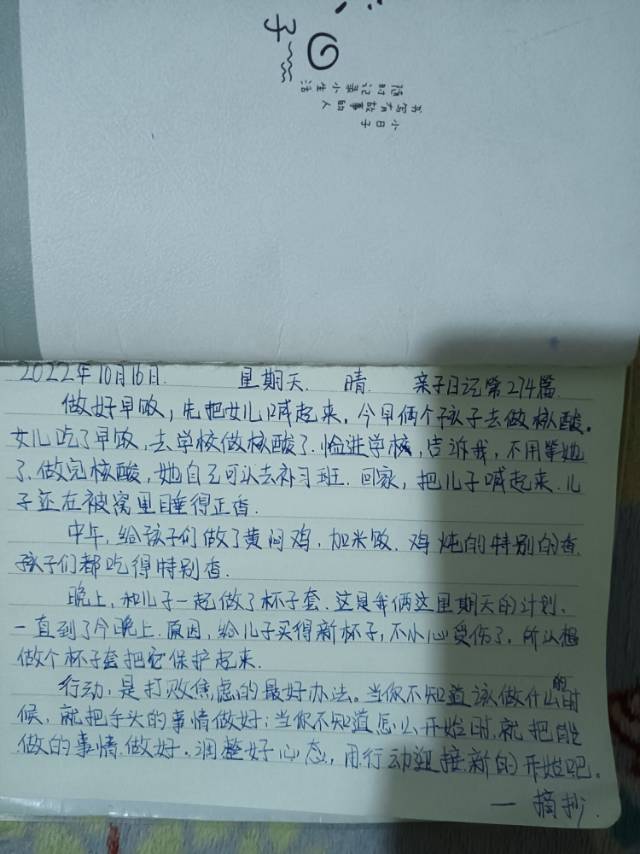 子
随时记录小生活
书写有故事的人
小日子
2022年10月16日. 星期天. 晴. 亲子日记第274篇.
做好早饭,先把女儿喊起来,今早俩个孩子去做核酸。
女儿吃了早饭,去学校做核酸了.临进学校,告诉我,不用等她
了.做完核酸,她自己可以去补习班.回家,把儿子喊起来.儿
子正在被窝里睡得正香.
中午,给孩子们做了黄闷鸡,加米饭.鸡炖的特别的香.
孩子们都吃得特别香.
晚上,和儿子一起做了杯子套.这是我俩这星期天的计划,
一直到了今晚上.原因,给儿子买得新杯子,不小心受伤了,所以想
做个杯子套把它保护起来.
行动,是打败焦虑的最好办法。当你不知道该做什么的时
候,就把手头的事情做好;当你不知道怎么开始时,就把能
做的事情做好.调整好心态,用行动迎接新的开始吧。
—摘抄.